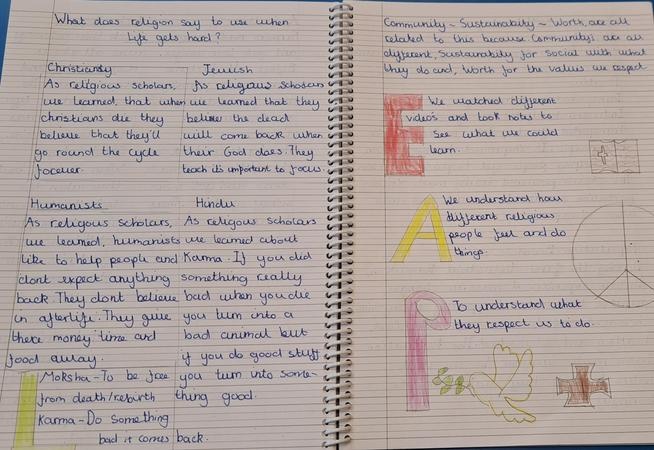 What does religion say to use when
Life gets hard?
Christianity
As religious scholars,
we learned, that when
christians die they
believe that they'll
go round the cycle
forever.
Jewish
As religious scholars
we learned that they
believe the dead
will come back when
their God does. They
teach its important to focus.
Humanists
As religous scholars,
we learned, humanists
like to help people and
dont expect anything
back. They dont believe
in afterlife. They give
there money, time and
food away.
Hindu
As religous scholars
we learned about
Karma. If you did
something really
bad when you die
you turn into a
bad animal but
if you do good stuff
you turn into some-
thing good.
L
Moksha - To be free
from death/rebirth
Karma - Do something
bad it comes back.
Community ~ Sustainability ~ Worth, are all
related to this because. Community: are all
different, Sustainability for social with what
they do and, Worth for the values we respect
E
We watched different
video's and took notes to
see what we could
learn.
A
We understand how
different religious
people feel and do
things.
P
To understand what
they respect us to do.